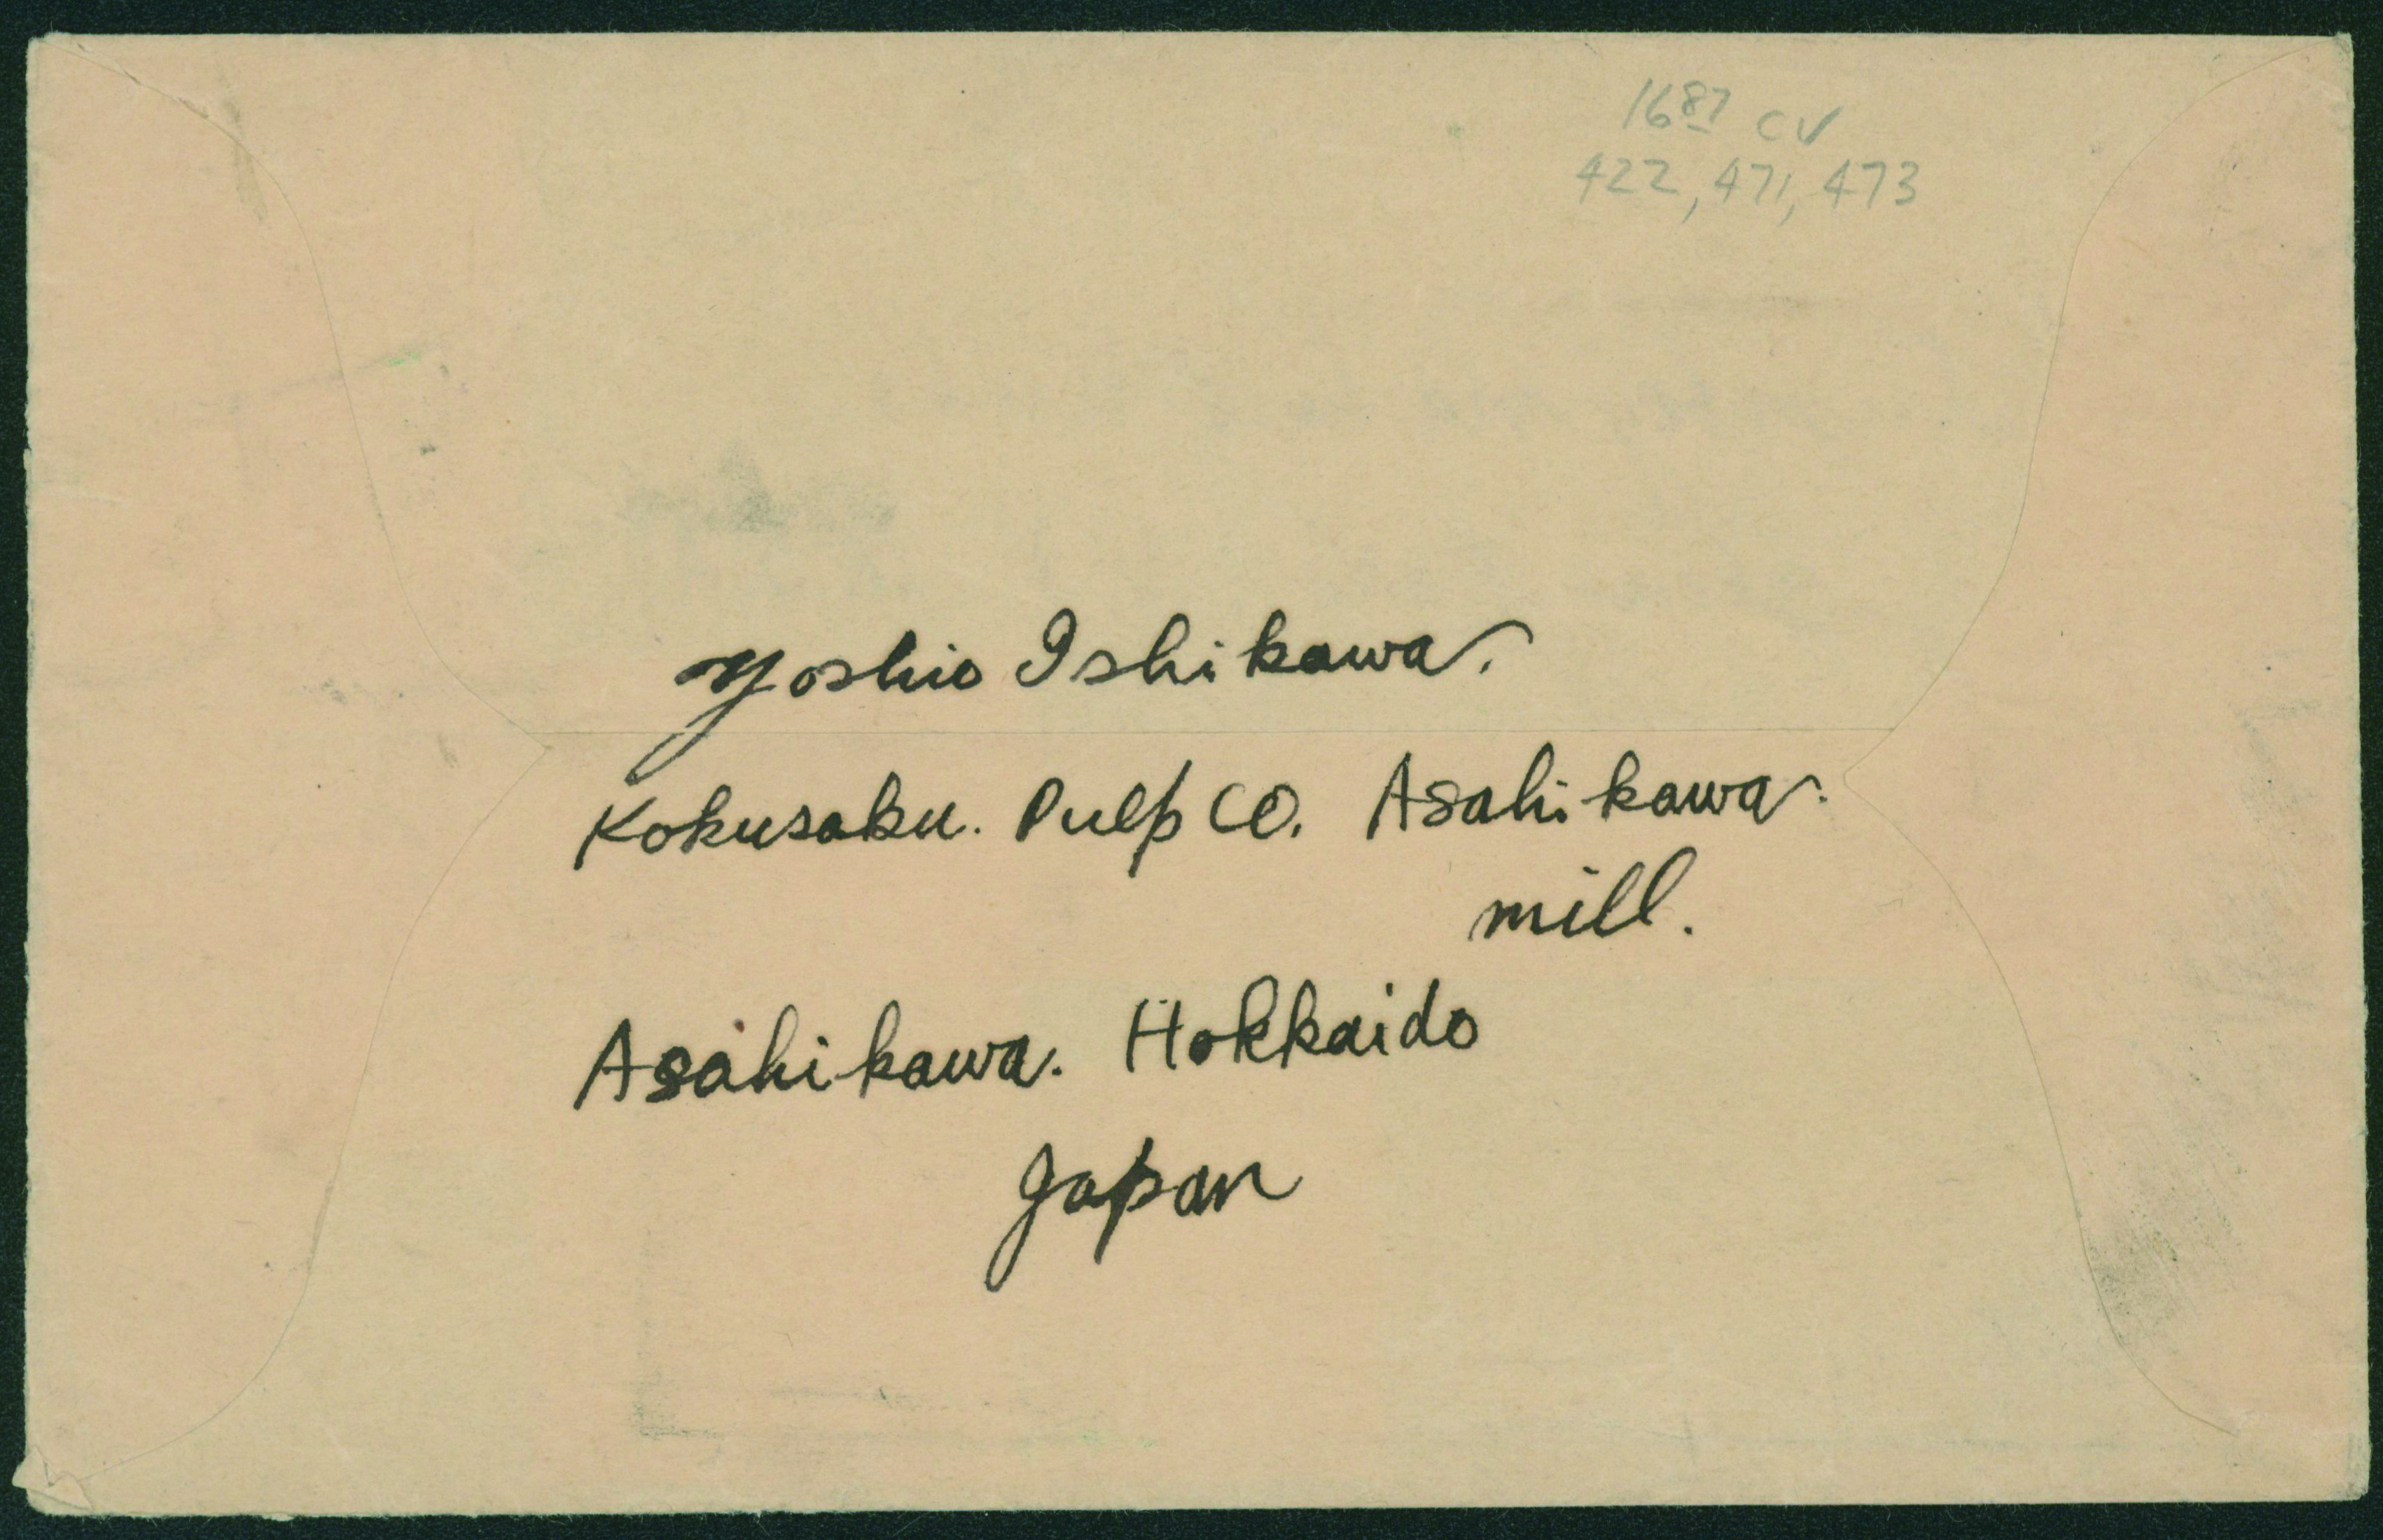 1687 CV
422, 471, 473
Yoshio Ishikawa.
Kokusaku. Pulp CO. Asahikawa.
mill.
Asahikawa. Hokkaido
Japan